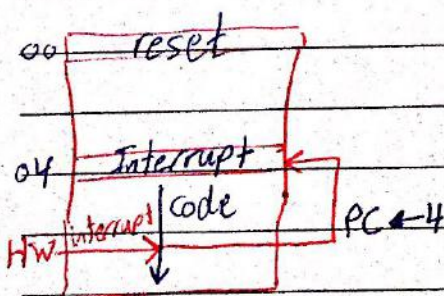 00 reset
04 Interrupt
code
HW interrupt
PC ← 4